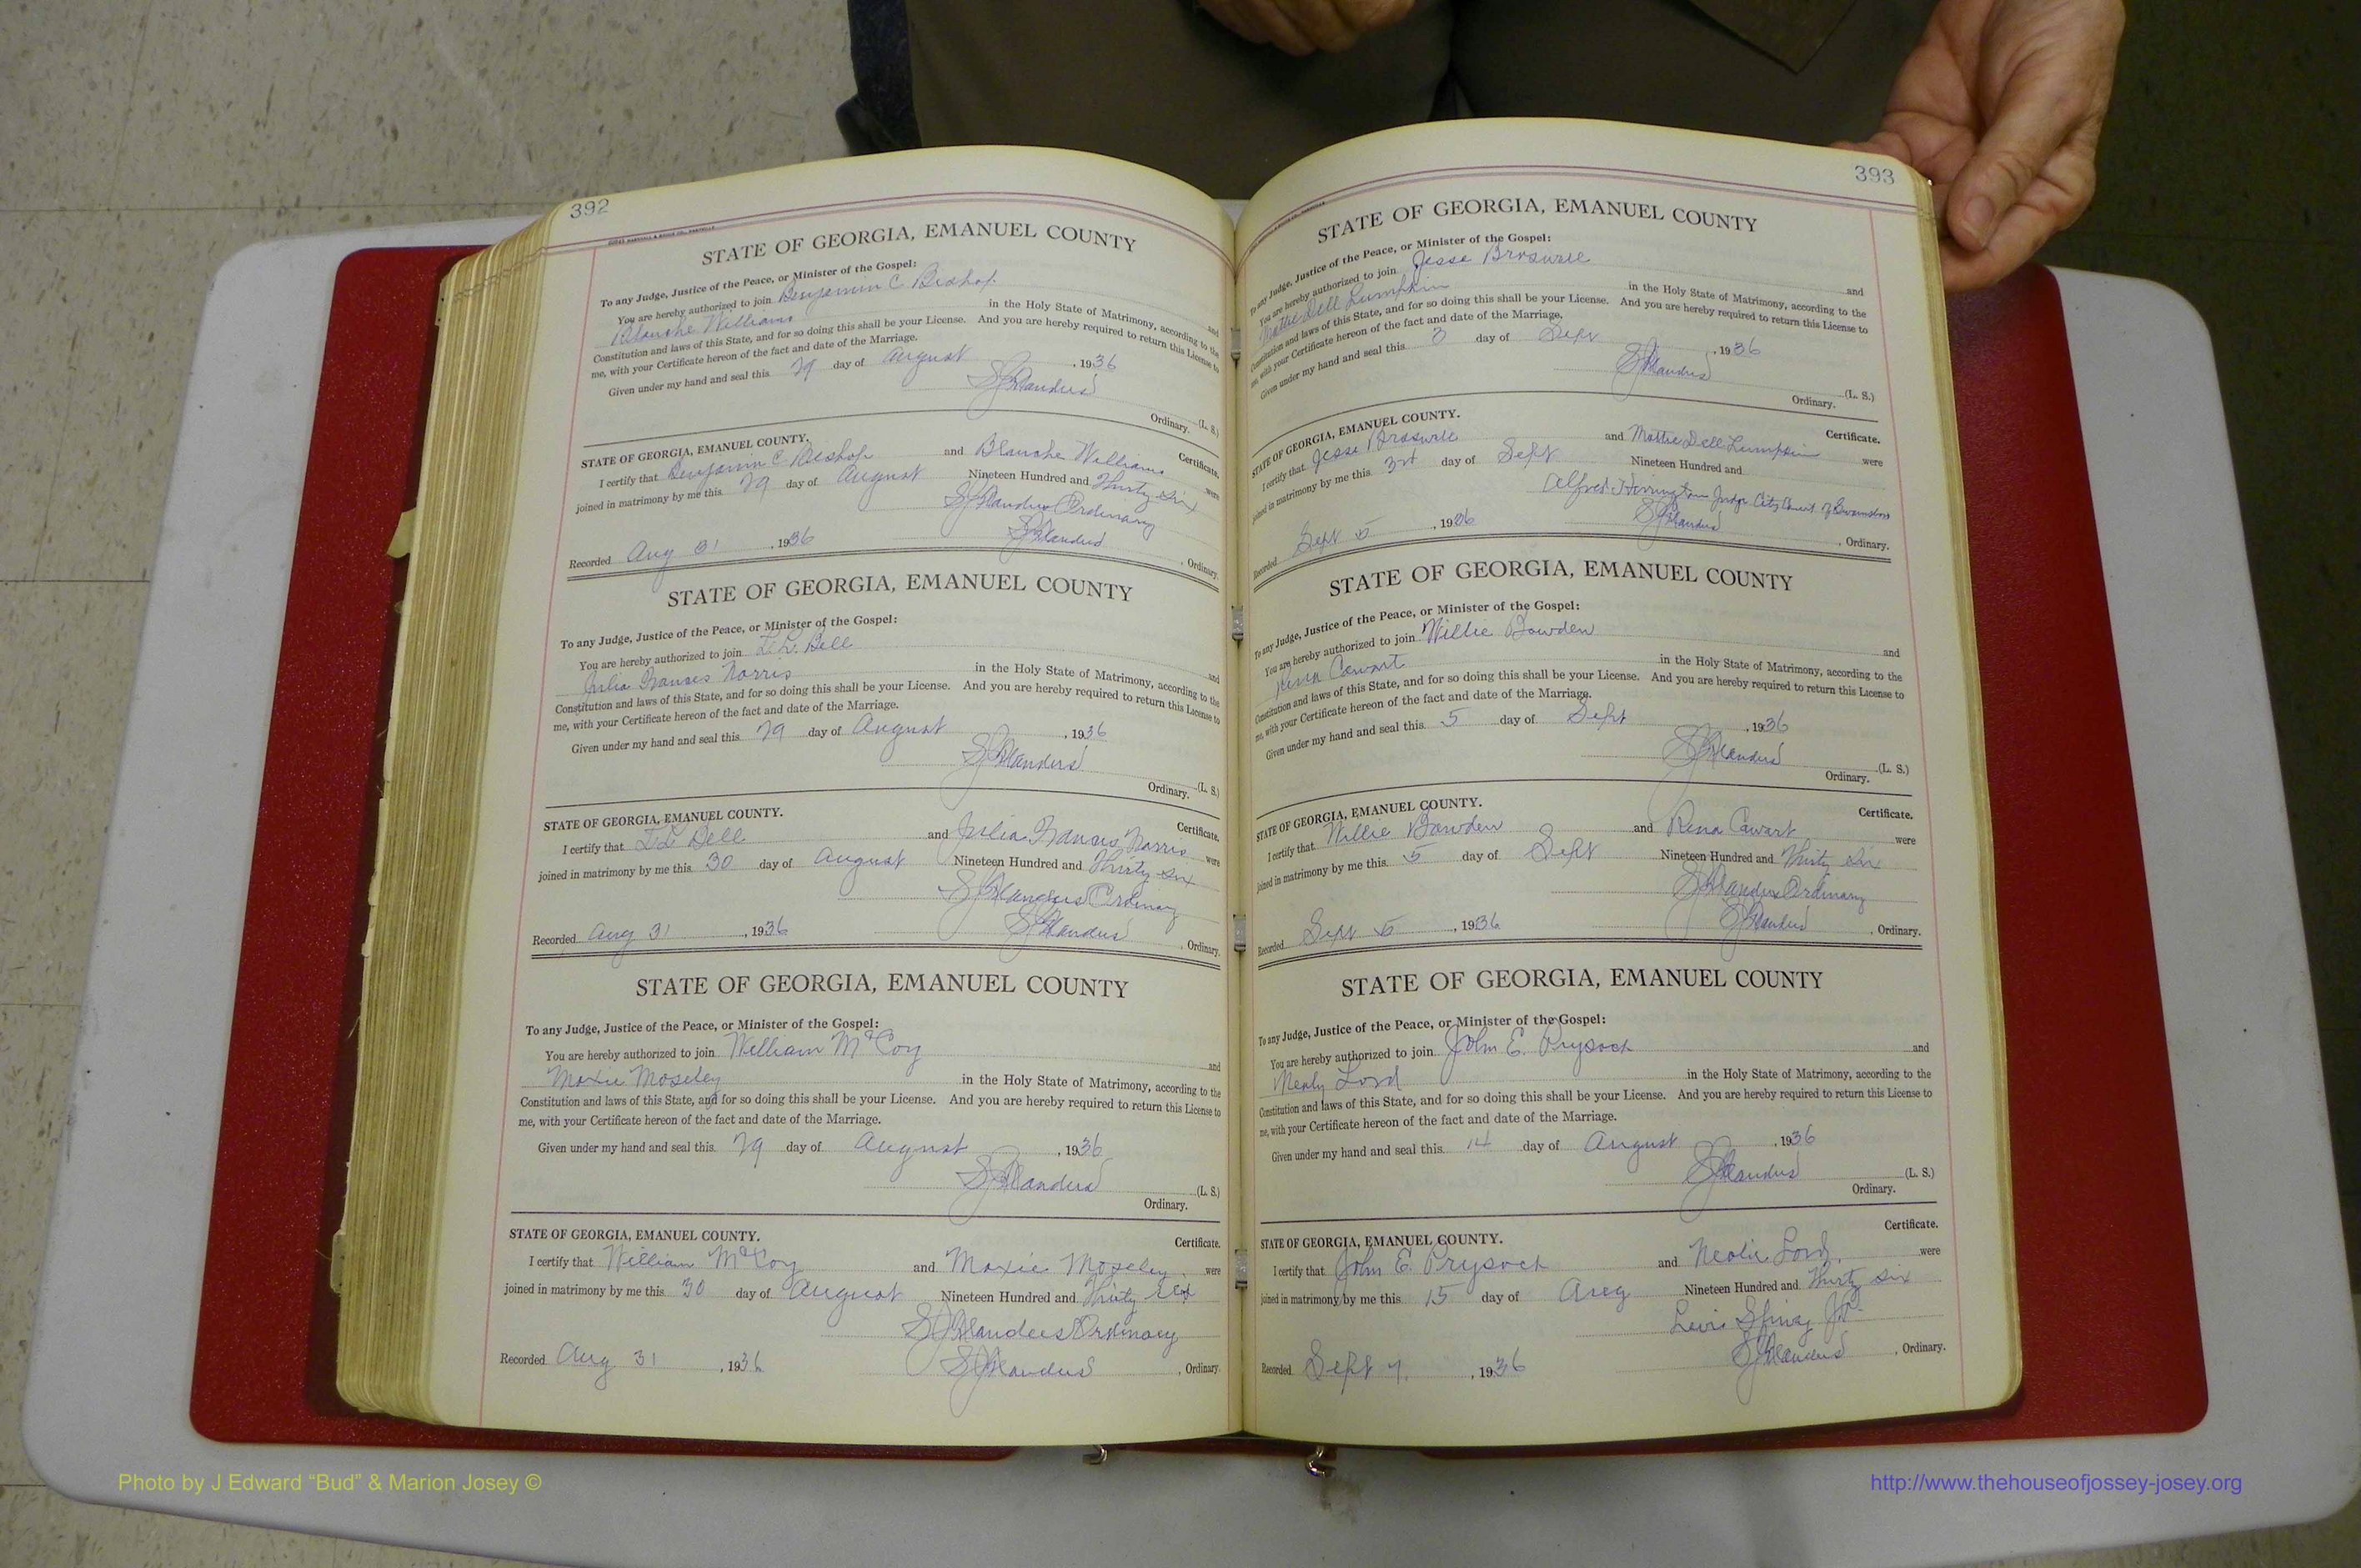 392
STATE OF GEORGIA, EMANUEL COUNTY
To any Judge, Justice of the Peace, or Minister of the Gospel:
You are hereby authorized to join Benjamin C Bishop and
Blanche Williams in the Holy State of Matrimony, according to the
Constitution and laws of this State, and for so doing this shall be your License. And you are hereby required to return this License to
me, with your Certificate hereon of the fact and date of the Marriage.
Given under my hand and seal this 29 day of August , 1936
(L. S.)
Ordinary.
STATE OF GEORGIA, EMANUEL COUNTY. Certificate.
I certify that Benjamin C Bishop and Blanche Williams were
joined in matrimony by me this 29 day of August Nineteen Hundred and Thirty Six
Ordinary
Recorded Aug 31 , 1936 , Ordinary.
STATE OF GEORGIA, EMANUEL COUNTY
To any Judge, Justice of the Peace, or Minister of the Gospel:
You are hereby authorized to join Bell and
Julia Frances Norris in the Holy State of Matrimony, according to the
Constitution and laws of this State, and for so doing this shall be your License. And you are hereby required to return this License to
me, with your Certificate hereon of the fact and date of the Marriage.
Given under my hand and seal this 29 day of August , 1936
(L. S.)
Ordinary.
STATE OF GEORGIA, EMANUEL COUNTY. Certificate.
I certify that Bell and Julia Frances Norris were
joined in matrimony by me this 30 day of August Nineteen Hundred and Thirty six
Ordinary
Recorded Aug 31 , 1936 , Ordinary.
STATE OF GEORGIA, EMANUEL COUNTY
To any Judge, Justice of the Peace, or Minister of the Gospel:
You are hereby authorized to join William McCoy and
Moxie Moseley in the Holy State of Matrimony, according to the
Constitution and laws of this State, and for so doing this shall be your License. And you are hereby required to return this License to
me, with your Certificate hereon of the fact and date of the Marriage.
Given under my hand and seal this 29 day of August , 1936
(L. S.)
Ordinary.
STATE OF GEORGIA, EMANUEL COUNTY. Certificate.
I certify that William McCoy and Moxie Moseley were
joined in matrimony by me this 30 day of August Nineteen Hundred and Thirty Six
Ordinary
Recorded Aug 31 , 1936 , Ordinary.
393
STATE OF GEORGIA, EMANUEL COUNTY
To any Judge, Justice of the Peace, or Minister of the Gospel:
You are hereby authorized to join Jesse Braswell and
Mattie Dell Lumpkin in the Holy State of Matrimony, according to the
Constitution and laws of this State, and for so doing this shall be your License. And you are hereby required to return this License to
me, with your Certificate hereon of the fact and date of the Marriage.
Given under my hand and seal this 3 day of Sept , 1936
(L. S.)
Ordinary.
STATE OF GEORGIA, EMANUEL COUNTY. Certificate.
I certify that Jesse Braswell and Mattie Dell Lumpkin were
joined in matrimony by me this 3rd day of Sept Nineteen Hundred and
Alfred Herrington Judge City Court of Swainsboro
Recorded Sept 5 , 1936 , Ordinary.
STATE OF GEORGIA, EMANUEL COUNTY
To any Judge, Justice of the Peace, or Minister of the Gospel:
You are hereby authorized to join Willie Bowden and
Rena Cowart in the Holy State of Matrimony, according to the
Constitution and laws of this State, and for so doing this shall be your License. And you are hereby required to return this License to
me, with your Certificate hereon of the fact and date of the Marriage.
Given under my hand and seal this 5 day of Sept , 1936
(L. S.)
Ordinary.
STATE OF GEORGIA, EMANUEL COUNTY. Certificate.
I certify that Willie Bowden and Rena Cowart were
joined in matrimony by me this 5 day of Sept Nineteen Hundred and Thirty Six
Ordinary
Recorded Sept 5 , 1936 , Ordinary.
STATE OF GEORGIA, EMANUEL COUNTY
To any Judge, Justice of the Peace, or Minister of the Gospel:
You are hereby authorized to join John E. Prysock and
Nealy Lord in the Holy State of Matrimony, according to the
Constitution and laws of this State, and for so doing this shall be your License. And you are hereby required to return this License to
me, with your Certificate hereon of the fact and date of the Marriage.
Given under my hand and seal this 14 day of August , 1936
(L. S.)
Ordinary.
STATE OF GEORGIA, EMANUEL COUNTY. Certificate.
I certify that John E. Prysock and Nealie Lord were
joined in matrimony by me this 15 day of Aug Nineteen Hundred and Thirty six
Recorded Sept 7 , 1936 , Ordinary.
Photo by J Edward “Bud” & Marion Josey ©
http://www.thehouseofjossey-josey.org